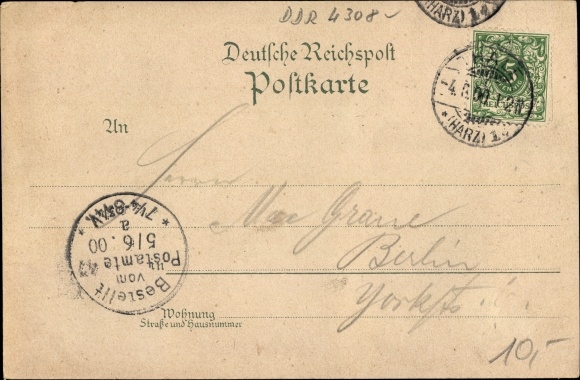 DDR 4308-
(HARZ) 1
Deutsche Reichspost
Postkarte
5
-4.6.00.1-2N
*(HARZ) 1*
An
Herrn
Max Graue
Berlin
Yorkstr.
* 7¼-8¼V. *
a
5/6.00
Postamte
vom
Bestellt
Wohnung
Straße und Hausnummer
10,-